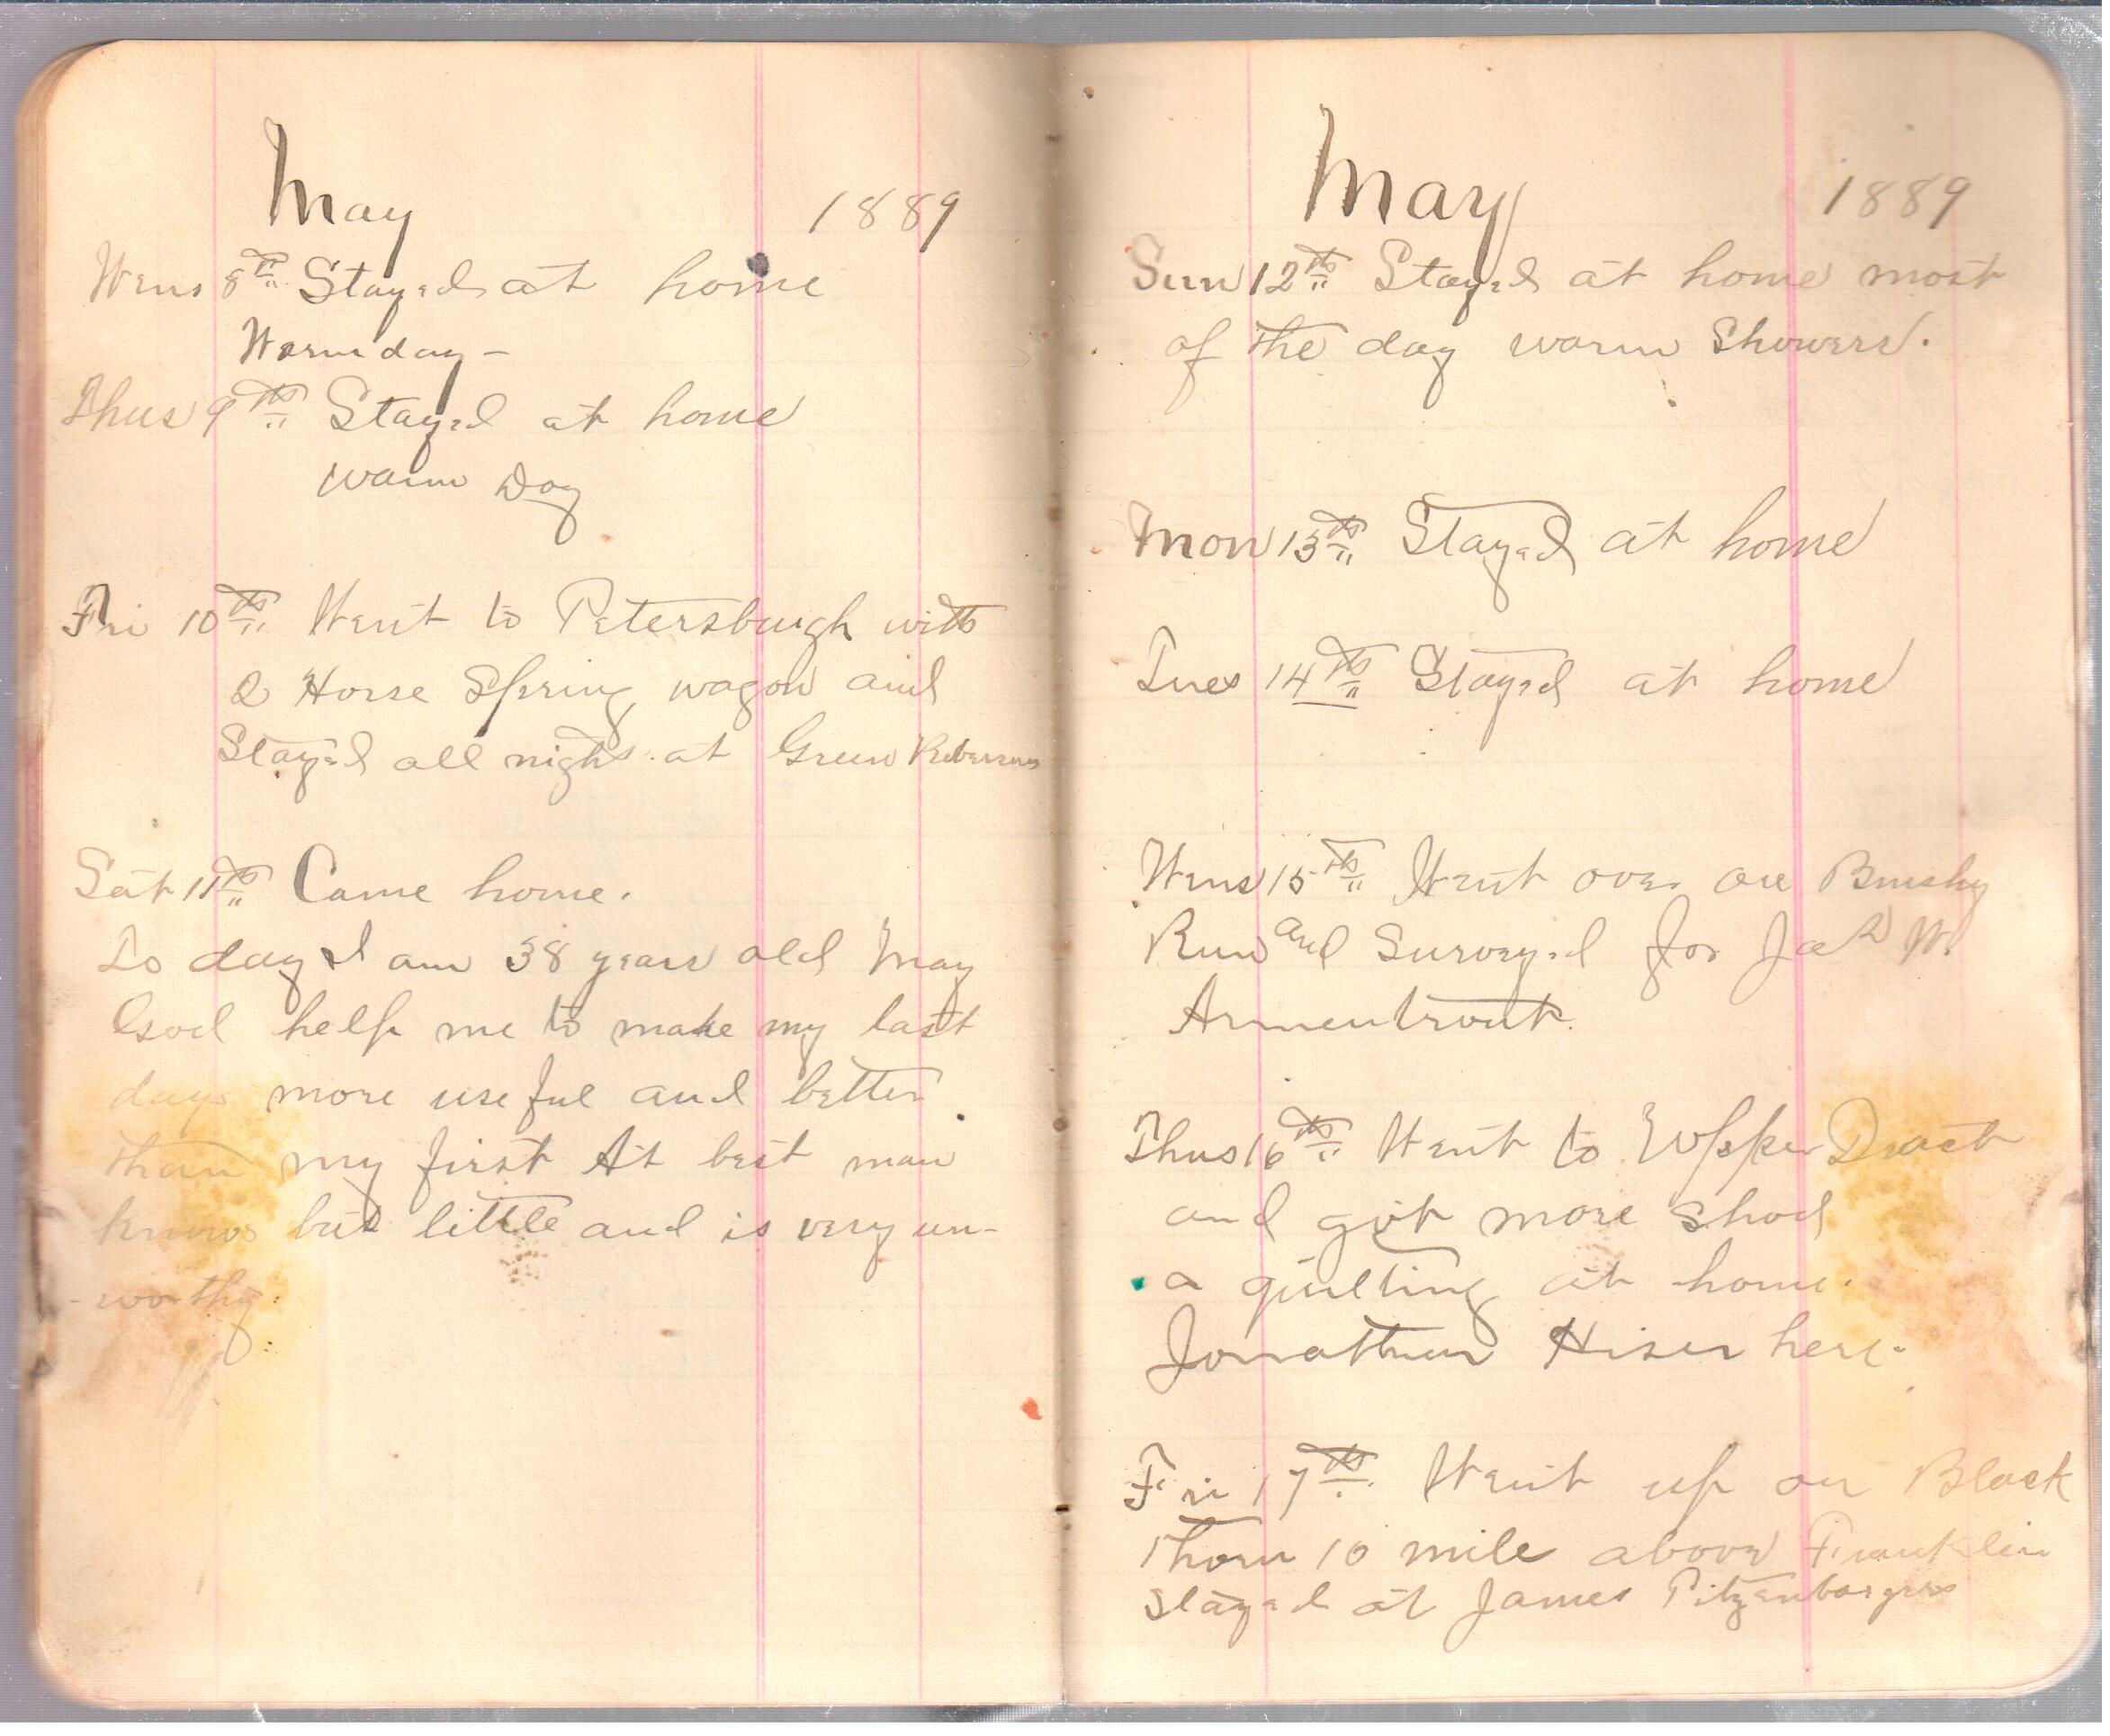 May 1889
Wens 8th Stayed at home
Warm day -
Thus 9th Stayed at home
warm Day
Fri 10th Went to Petersburgh with
2 Horse Spring wagon and
Stayed all night at Green
Sat 11th Came home.
To day I am 38 years old May
God help me to make my last
days more useful and better
than my first At best man
knows but little and is very un-
-worthy.
May 1889
Sun 12th Stayed at home most
of the day warm Showers.
Mon 13th Stayed at home
Tues 14th Stayed at home
Wens 15th Went over on Brushy
Run and Surveyed for W.
Armentrout.
Thus 16th Went to Upper Tract
and got more shod
a quilting at home.
Jonathan Hiser here.
Fri 17th Went up on Black
Thorn 10 mile above Franklin
Stayed at James Pitzenbargers